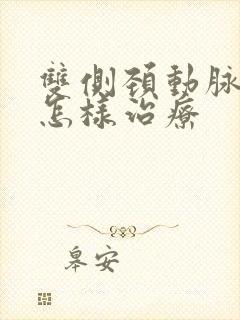 雙側頚動脉
怎樣治療
皋安